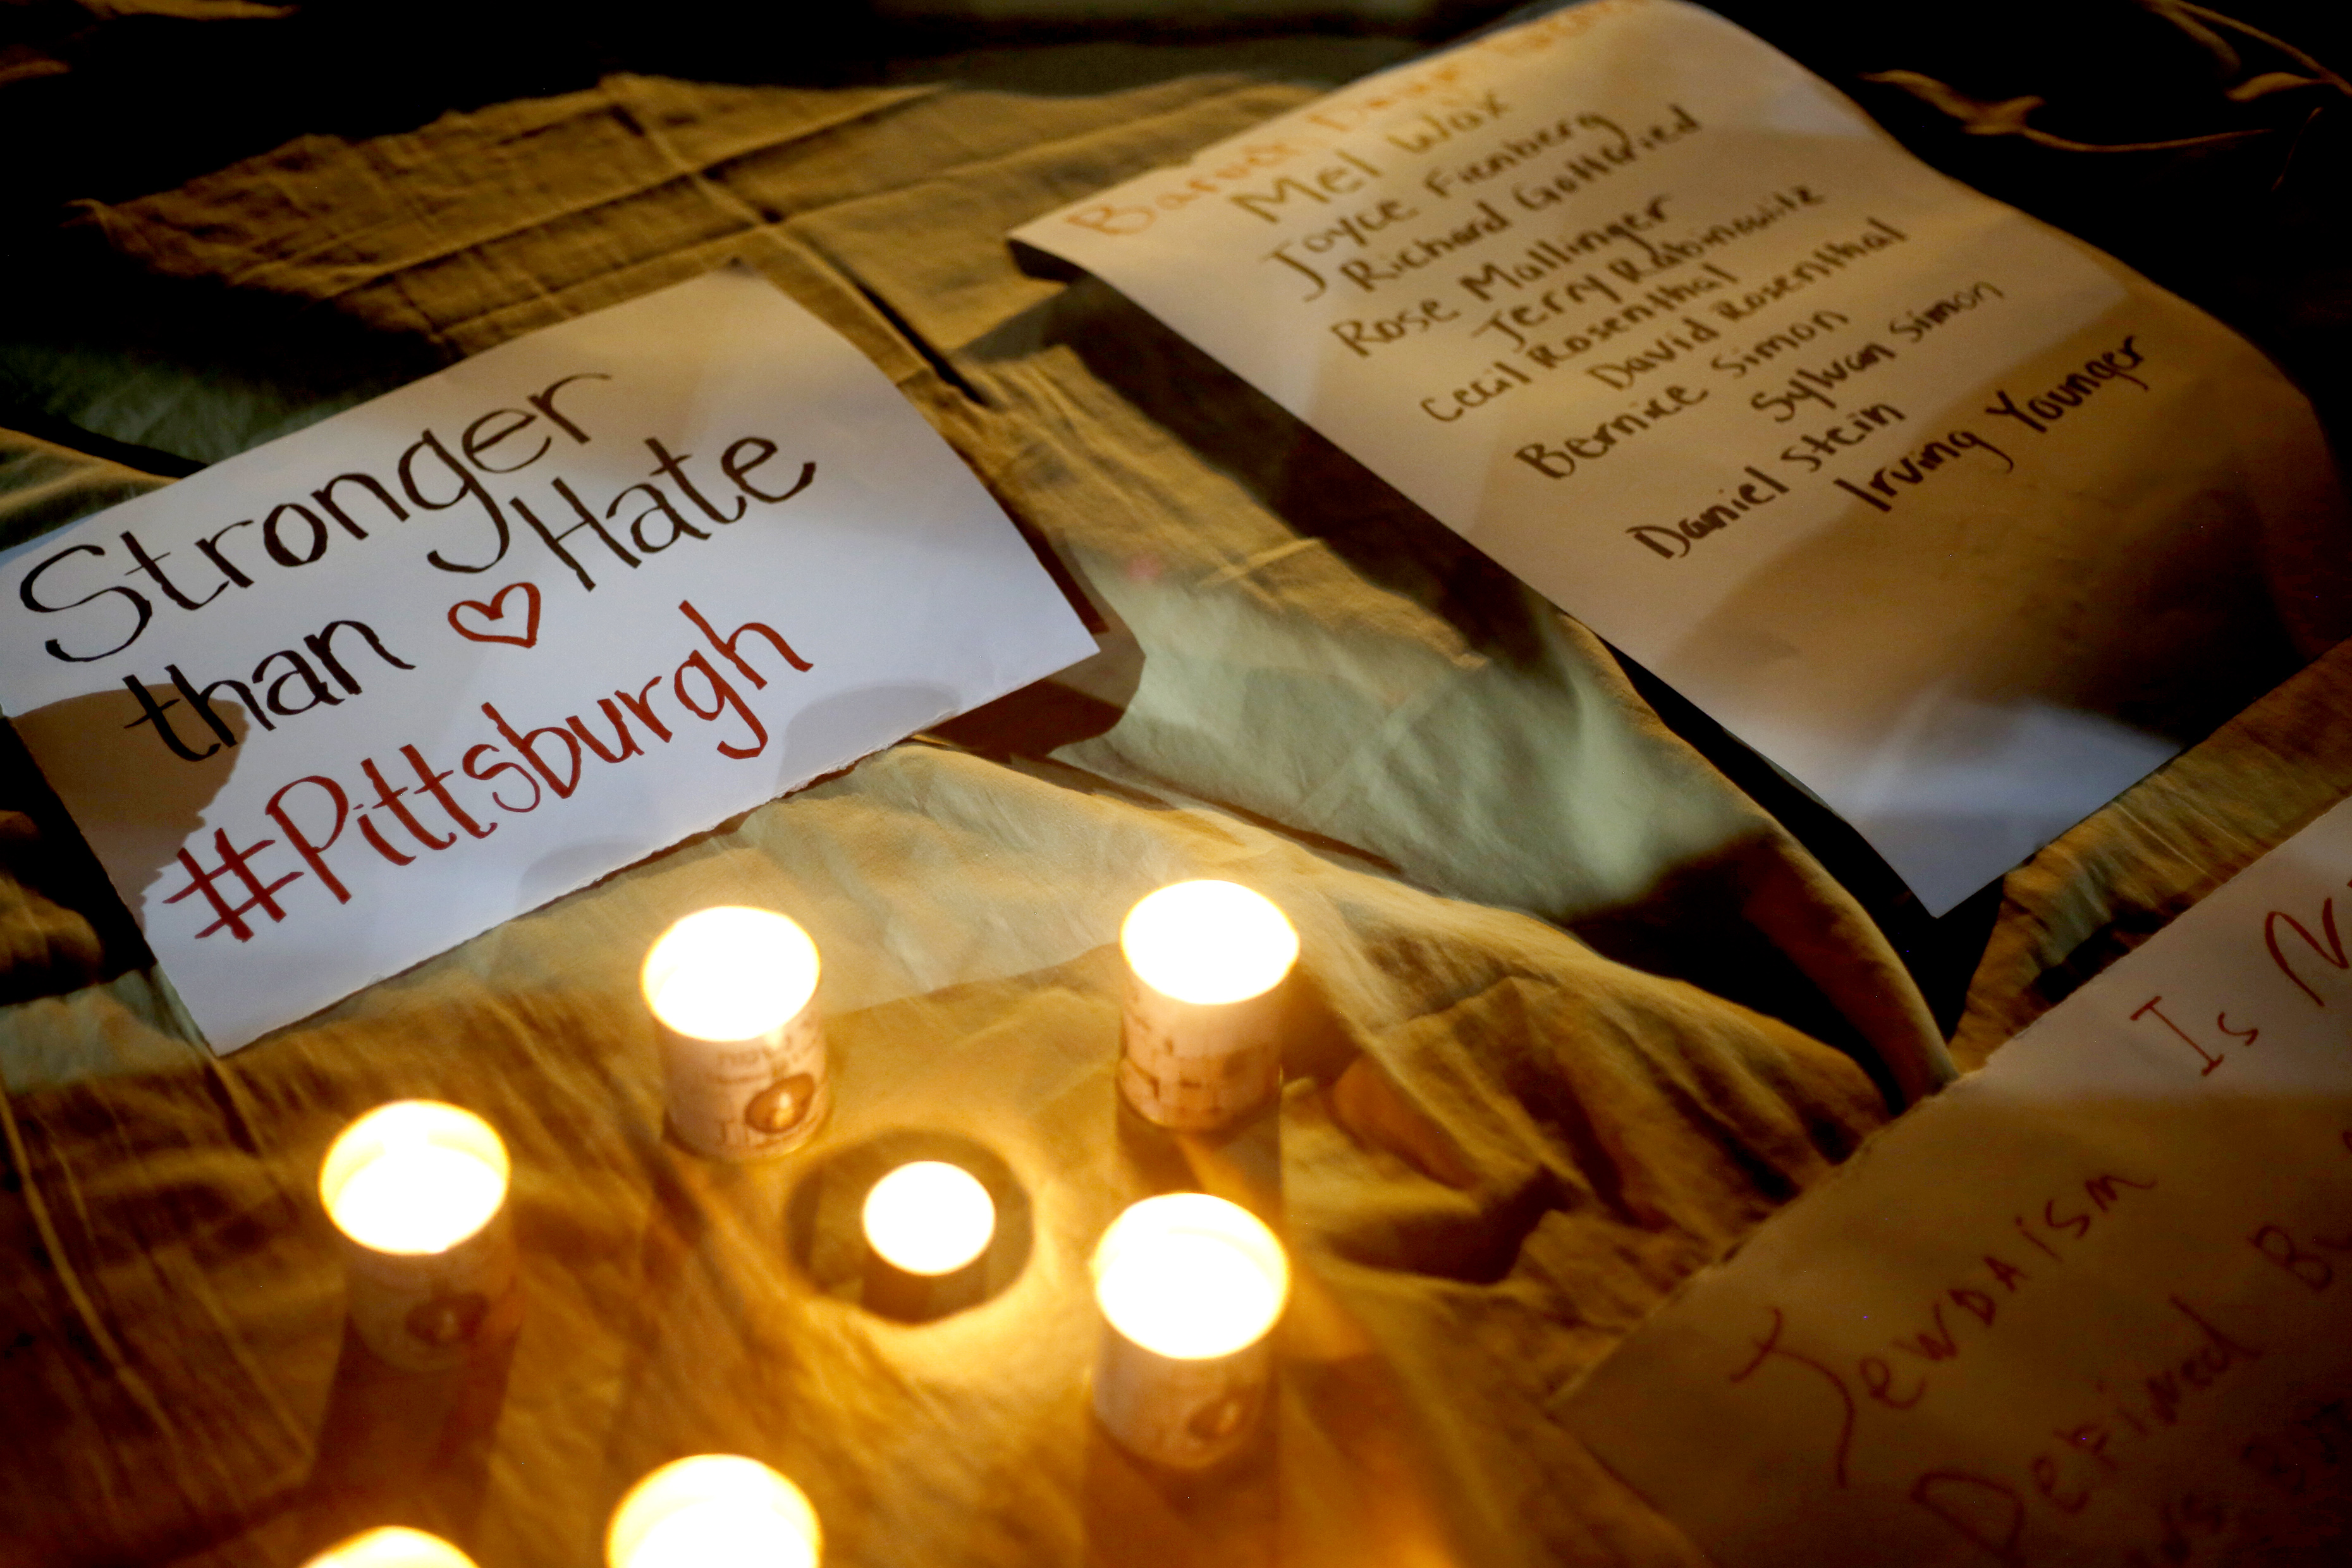 Stronger
than ♡ Hate
#Pittsburgh
Baruch Dayan
Mel Wax
Joyce Fienberg
Richard Gottfried
Rose Mallinger
Jerry Rabinowitz
Cecil Rosenthal
David Rosenthal
Bernice Simon
Sylvan Simon
Daniel Stein
Irving Younger
Is
JewDAism
Defined